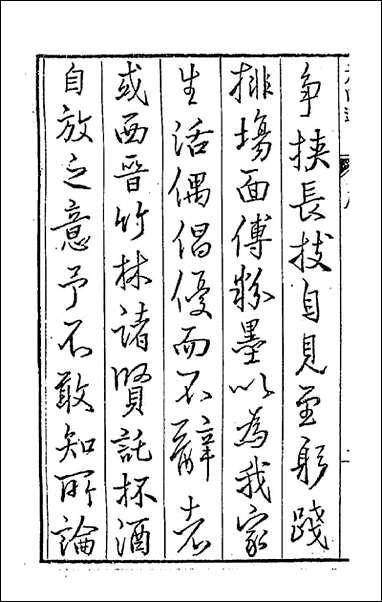 争挾長技自見至躬踐
排場面傅粉墨以為我家
生活偶倡優而不辭者
或西晋竹林諸賢託杯酒
自放之意予不敢知所論